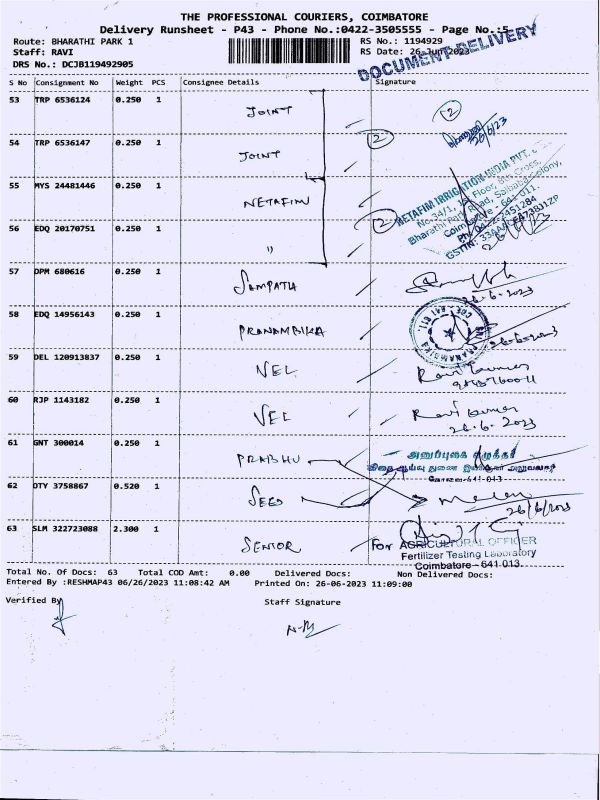 THE PROFESSIONAL COURIERS, COIMBATORE
Delivery Runsheet - P43 - Phone No.:0422-3505555 - Page No.:5
Route: BHARATHI PARK 1 RS No.: 1194929
Staff: RAVI RS Date: 26-Jun-2023
DRS No.: DCJB119492905
DOCUMENT DELIVERY
S No Consignment No Weight PCS Consignee Details Signature
53 TRP 6536124 0.250 1 JOINT 2
26/6/23
54 TRP 6536147 0.250 1 JOINT 2
55 MYS 24481446 0.250 1 NETAFIM 2
NETAFIM IRRIGATION INDIA PVT.
No.34/1, Floor, 8th Cross,
Bharathi Park Road, Saibaba Colony,
Coimbatore - 641 011.
Ph: 0422-2451284
56 EDQ 20170751 0.250 1 "
57 DPM 680616 0.250 1 SAMPATH
26-6-2023
58 EDQ 14956143 0.250 1 PRANAMBIKA
PRANAMBIKA
26-6-2023
59 DEL 120913837 0.250 1 VEL Ravi kumar
60 RJP 1143182 0.250 1 VEL Ravi kumar
26-6-2023
61 GNT 300014 0.250 1 PRABHU
அனுப்புகை எழுத்தர்
விதை ஆய்வு துணை இயக்குநர் அலுவலகம்
கோவை-641-013
62 DTY 3758867 0.520 1 SEED
26/6/2023
63 SLM 322723088 2.300 1 SENIOR
For AGRICULTURAL OFFICER
Fertilizer Testing Laboratory
Coimbatore - 641 013.
Total No. Of Docs: 63 Total COD Amt: 0.00 Delivered Docs: Non Delivered Docs:
Entered By :RESHMAP43 06/26/2023 11:08:42 AM Printed On: 26-06-2023 11:09:00
Verified By Staff Signature